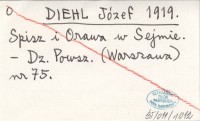 0
DIEHL Józef 1919.
Spisz i Orawa w Sejmie.
- Dz. Powsz. (Warszawa)
nr 75.